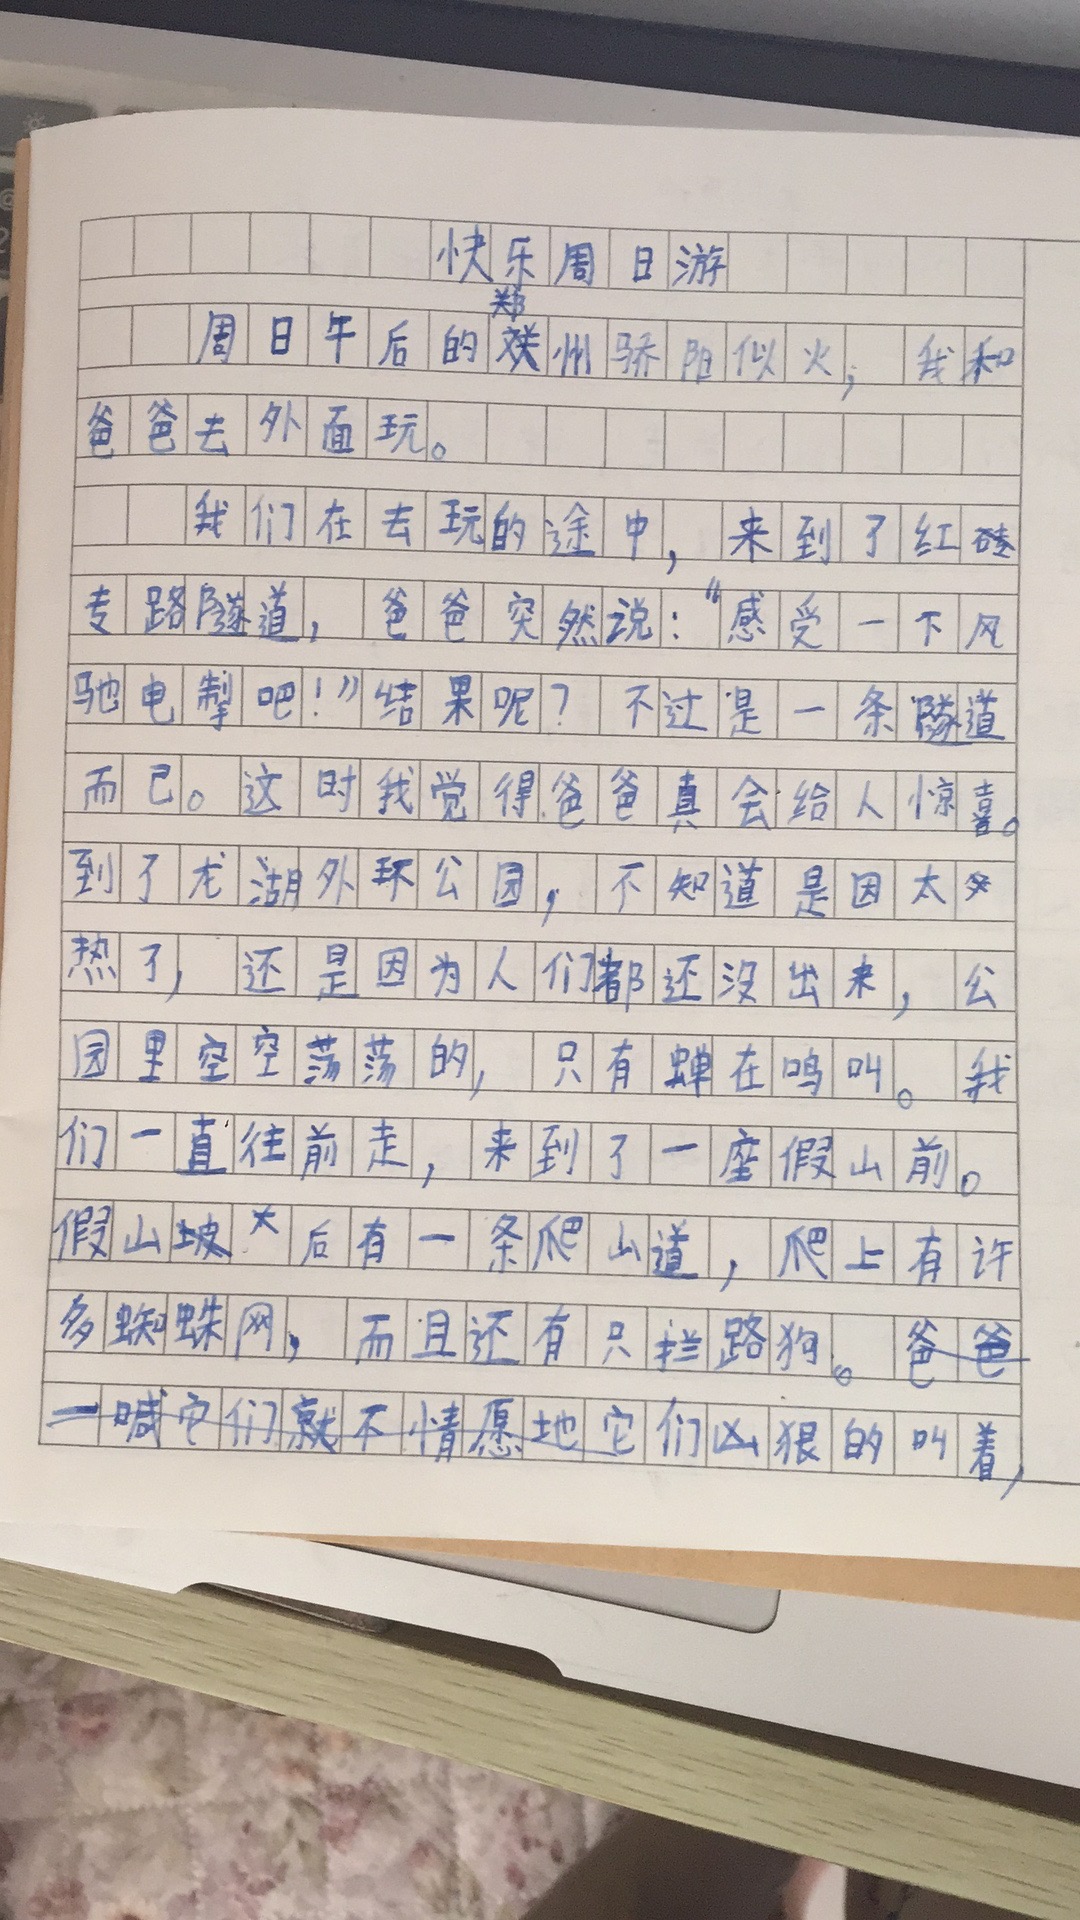 快乐周日游
郑
周日午后的州骄阳似火，我和
爸爸去外面玩。
我们在去玩的途中，来到了红
专路隧道，爸爸突然说：“感受一下风
驰电掣吧！”结果呢？不过是一条隧道
而已。这时我觉得爸爸真会给人惊喜。
到了龙湖外环公园，不知道是因太
热了，还是因为人们都还没出来，公
园里空空荡荡的，只有蝉在鸣叫。我
们一直往前走，来到了一座假山前。
假山坡后有一条爬山道，爬上有许
多蜘蛛网，而且还有只拦路狗。爸爸
一喊它们就不情愿地它们凶狠的叫着，